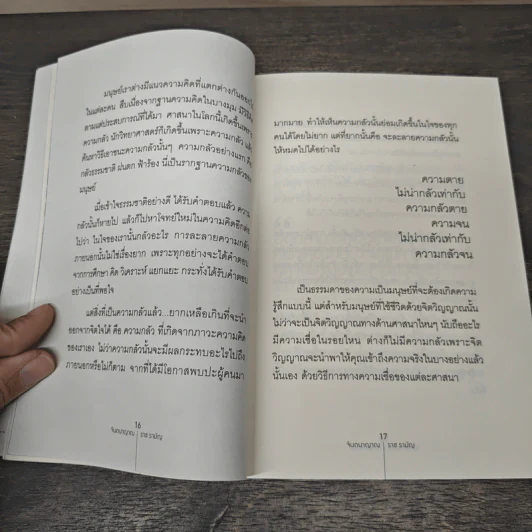 มนุษย์เราต่างมีแนวความคิดที่แตกต่างกันออกไป
ในแต่ละคน สืบเนื่องจากฐานความคิดในบางมุม
ตามแต่ประสบการณ์ที่ได้มา ศาสนาในโลกนี้เกิดขึ้นเพราะ
ความกลัว นักวิทยาศาสตร์ก็เกิดขึ้นเพราะความกลัว แล้ว
ค้นหาวิธีเอาชนะความกลัวนั้นๆ ความกลัวอย่างแรก คือ
กลัวธรรมชาติ ฝนตก ฟ้าร้อง นี่เป็นรากฐานความกลัวของ
มนุษย์
เมื่อเข้าใจธรรมชาติอย่างดี ได้รับคำตอบแล้ว ความ
กลัวนั้นก็หายไป แล้วก็ไปหาโจทย์ใหม่ในความคิดอีกต่อ
ไปว่า ในใจของเรานั้นกลัวอะไร การละลายความกลัว
ภายนอกนั้นไม่ใช่เรื่องยาก เพราะทุกอย่างจะได้คำตอบ
จากการศึกษา คิด วิเคราะห์ แยกแยะ กระทั่งได้รับคำตอบ
อย่างเป็นที่พอใจ
แต่สิ่งที่เป็นความกลัวแล้ว...ยากเหลือเกินที่จะนำ
ออกจากจิตใจได้ คือ ความกลัว ที่เกิดจากภาวะความคิด
ของเราเอง ไม่ว่าความกลัวนั้นจะมีผลกระทบอะไรไปถึง
ภายนอกหรือไม่ก็ตาม จากที่ได้มีโอกาสพบปะผู้คนมา
16
จินตนาญาณ | ราช รามัญ
มากมาย ทำให้เห็นความกลัวนั้นย่อมเกิดขึ้นในใจของทุก
คนได้โดยไม่ยาก แต่ที่ยากนั้นคือ จะละลายความกลัวนั้น
ให้หมดไปได้อย่างไร
ความตาย
ไม่น่ากลัวเท่ากับ
ความกลัวตาย
ความจน
ไม่น่ากลัวเท่ากับ
ความกลัวจน
เป็นธรรมดาของความเป็นมนุษย์ที่จะต้องเกิดความ
รู้สึกแบบนี้ แต่สำหรับมนุษย์ที่ใช้ชีวิตด้วยจิตวิญญาณนั้น
ไม่ว่าจะเป็นจิตวิญญาณทางด้านศาสนาไหนๆ นับถืออะไร
มีความเชื่อในรอยไหน ต่างก็ไม่มีความกลัวเพราะจิต
วิญญาณจะนำพาให้คุณเข้าถึงความจริงในบางอย่างแล้ว
นั้นเอง ด้วยวิธีการทางความเชื่อของแต่ละศาสนา
17
จินตนาญาณ | ราช รามัญ